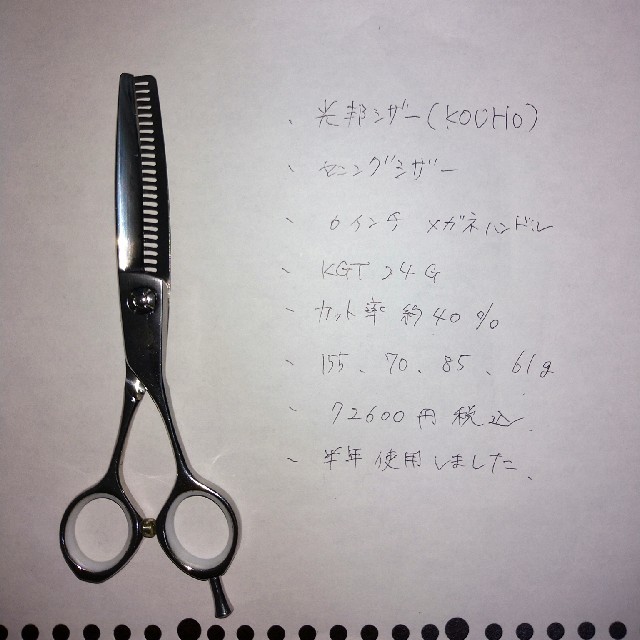 、光邦シザー(KOUHO)
、セニングシザー
、6インチ メガネハンドル
、KGT 24G
、カット率 約40%
、155、70、85、61g
、72600円 税込
、半年 使用しました。